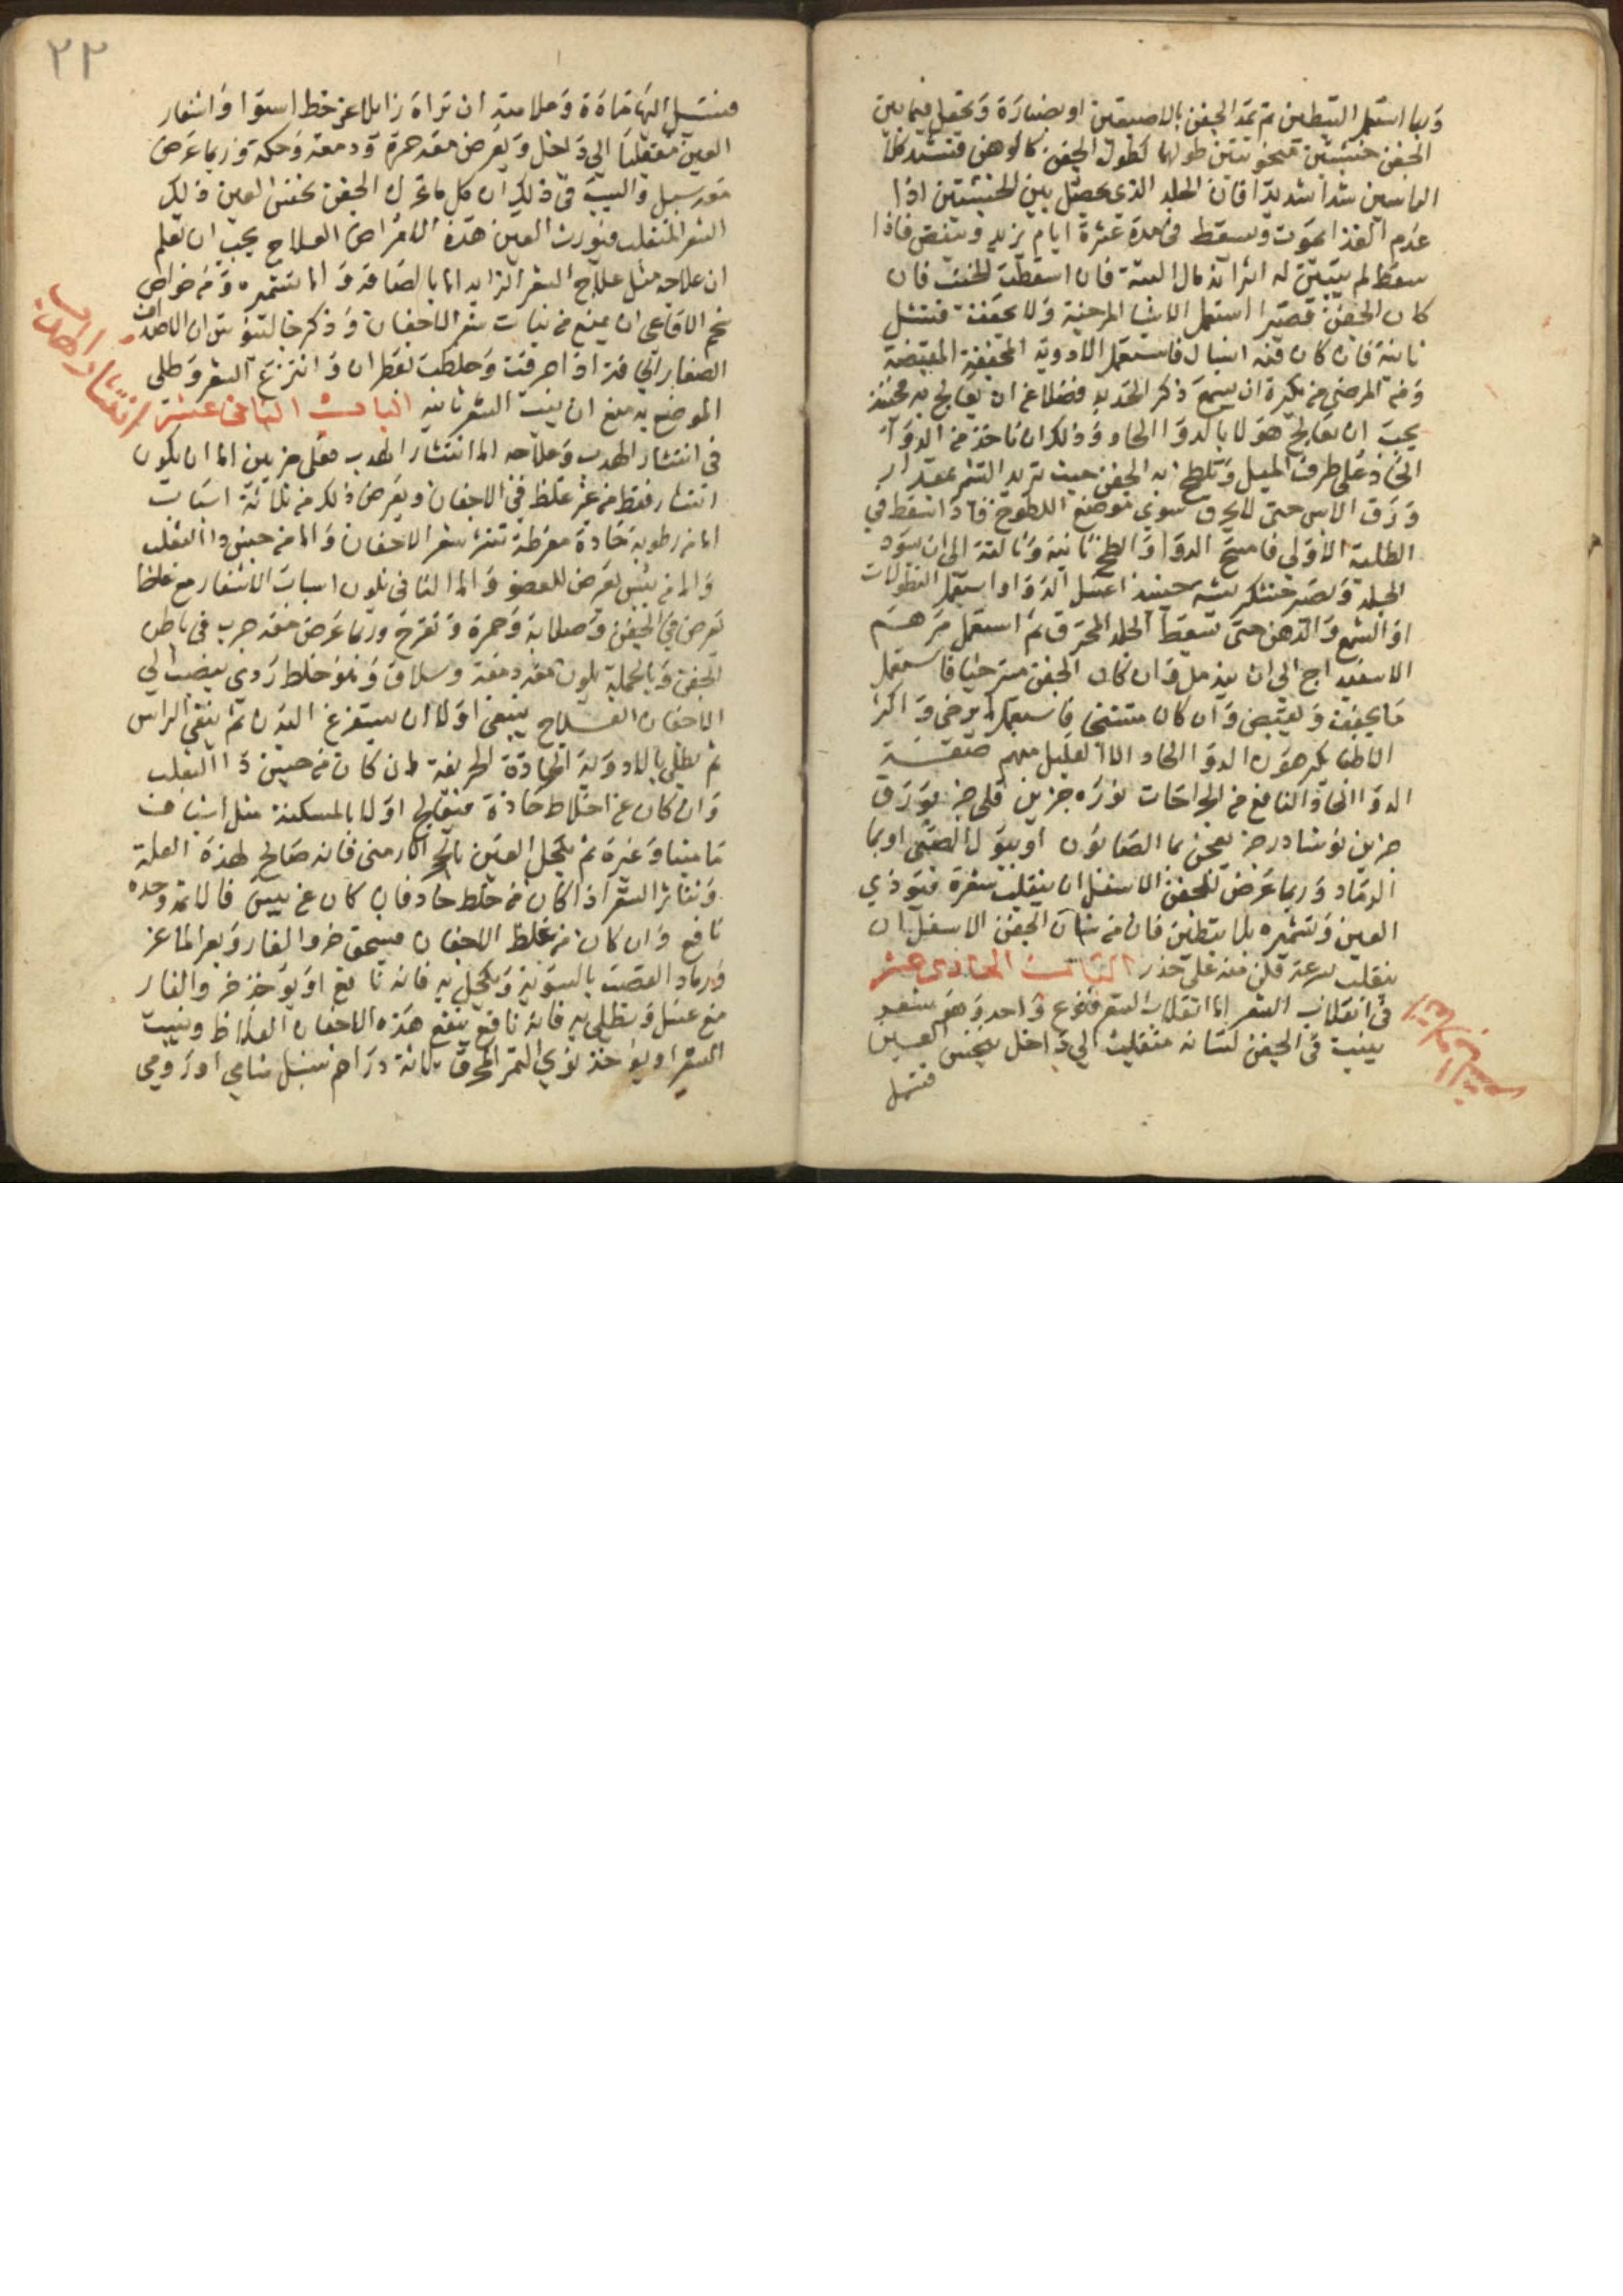 وربما استعمل التبطين ثم تمد الجفن بالاصبعين او بصنارة وتجعل فيما بين
الجفن خشبتين طولهما كطول الجفن فتشد كلا
الراسين شدا شديدا فان الجلد الذي يحصل بين الخشبتين اذا
عدم الغذا يموت ويسقط في مدة عشرة ايام يزيد وينقص فاذا
سقط لم يتبين له اثر اندمال البتة فان اسقطت الخشب فان
كان الجفن قصيرا استعمل الاشيا المرخية ولا يجففه
ثانية فان كان فيه استعمل الادوية المجففة المقبضة
ومن المرضى من يكره ان يسمع ذكر الحديد فضلا عن ان يعالج به فحينئذ
يجب ان يعالج هولا بالدوا الحاد وذلك ان تاخذ من الدوا
الحاد على طرف الميل وتلطخ به الجفن حيث تريد التشمير بمقدار
ورق الاس حتى لا يحرق سوى موضع اللطوخ فاذا سقط في
الطلية الاولى فامسح الدوا والطخ ثانية وثالثة الى ان يسود
الجلد ويصير خشكريشة حينئذ اغسل الدوا واستعمل النطولات
او الشمع والدهن حتى يسقط الجلد المحرق ثم استعمل مرهم
الاسفيداج الى ان يندمل وان كان الجفن مسترخيا فاستعمل
ما يجفف ويقبض وان كان متشنجا فاستعمل ما يرخي واكثر
الاطبا يكرهون الدوا الحاد الا القليل منهم صفة
الدوا الحاد النافع من الجراحات نوره جزين قلي جز بورق
جزين نوشادر جز يعجن بما الصابون او ببول الصبي او بما
الرماد وربما عرض للجفن الاسفل ان ينقلب شعره فيوذي
العين وتشميره بلا تبطين فان من شان الجفن الاسفل ان
ينقلب بسرعة فكن منه على حذر الباب الحادي عشر
في انقلاب الشعر اما انقلاب الشعر فنوع واحد وهو شعر
ينبت في الجفن لسانه منقلب الى داخل ينخس العين
فتسيل
٢٢
فتسيل اليها مادة وعلامته ان تراه زايلا عن خط استوا واشفار
العين منقلبا الى داخل ويعرض معه حمرة ودمعة وحكة وربما عرض
معه سبل والسبب في ذلك ان كل ما تحرك الجفن نخس العين ذلك
الشعر المنقلب فيورث العين هذه الامراض العلاج يجب ان تعلم
ان علاجه مثل علاج الشعر الزايد اما بالصاقه واما بتشميره ومن خواص
شحم الافاعي ان يمنع من نبات شعر الاجفان وذكر جالينوس ان الاصداف
الصغار التي اذا احرقت وخلطت بقطران وانتزع الشعر وطلي
الموضع به منع ان ينبت الشعر ثانية الباب الثاني عشر
في انتشار الهدب وعلاجه اما انتشار الهدب فعلى ضربين اما ان يكون
انتثار فقط من غير غلظ في الاجفان ويعرض ذلك من ثلاثة اسباب
اما من رطوبة حادة مفرطة تنثر شعر الاجفان واما من جنس دا الثعلب
واما من يبس يعرض للعضو واما الثاني يكون اسباب الانتثار مع غلظ
يعرض في الجفن وصلابة وحمرة وتقرح وربما عرض معه جرب في باطن
الجفن وبالجملة يكون معه دمعة وسلاق وهو خلط ردي ينصب الى
الاجفان العلاج ينبغي اولا ان يستفرغ البدن ثم ينقي الراس
ثم يطلي بالادوية الحادة الحريفة ان كان من جنس دا الثعلب
وان كان عن اخلاط حادة فيعالج اولا بالمسكنة مثل اشياف
ماميثا وغيره ثم يكحل العين بالحجر الارمني فانه صالح لهذه العلة
وتناثر الشعر اذا كان من خلط حاد فان كان عن يبس فالاثمد وحده
نافع وان كان من غلظ الاجفان فيسحق خرو الفار وبعر الماعز
ورماد القصب بالسوية ويكحل به فانه نافع او يوخذ خرو الفار
مع عسل ويطلى به فانه نافع ينفع هذه الاجفان الغلاظ وينبت
الشعر او يوخذ نوى التمر المحرق ثلاثة دراهم سنبل شامي او رومي
انتشار الهدب